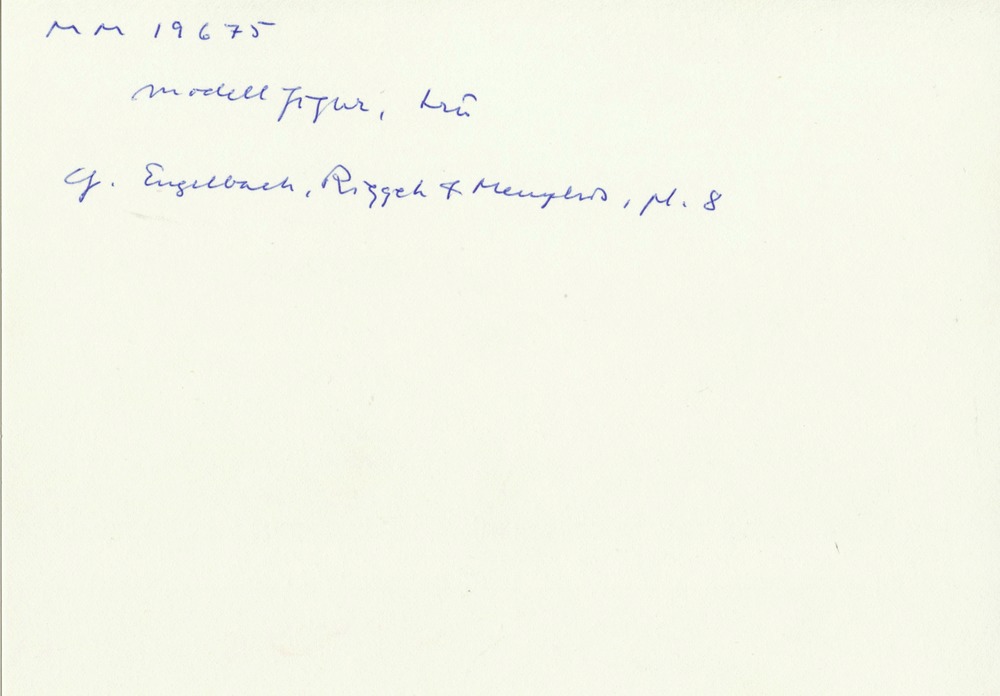 MM 19675
modellfigur, trä
Cf. Engelbach, Riqqeh & Memphis, pl. 8